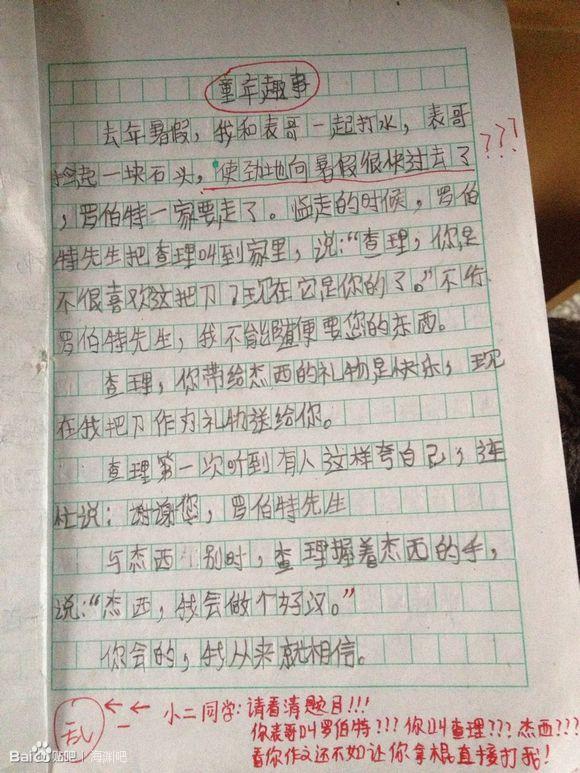 童年趣事
去年暑假，我和表哥一起打水，表哥
捡起一块石头，使劲地向暑假很快过去了
???
，罗伯特一家要走了。临走的时候，罗伯
特先生把查理叫到家里，说：“查理，你是
不很喜欢这把刀了现在它是你的了。”不行
罗伯特先生，我不能随便要您的东西。
查理，你带给杰西的礼物是快乐，现
在我把刀作为礼物送给你。
查理第一次听到有人这样夸自己，连
忙说：谢谢您，罗伯特先生
与杰西 别时，查理握着杰西的手，
说：“杰西，我会做个好汉。”
你会的，我从来就相信。
乱
小二同学：请看清题目!!!
你表哥叫罗伯特???你叫查理???杰西???
看你作文还不如让你拿棍直接打我!
Baidu贴吧 | 海渊吧